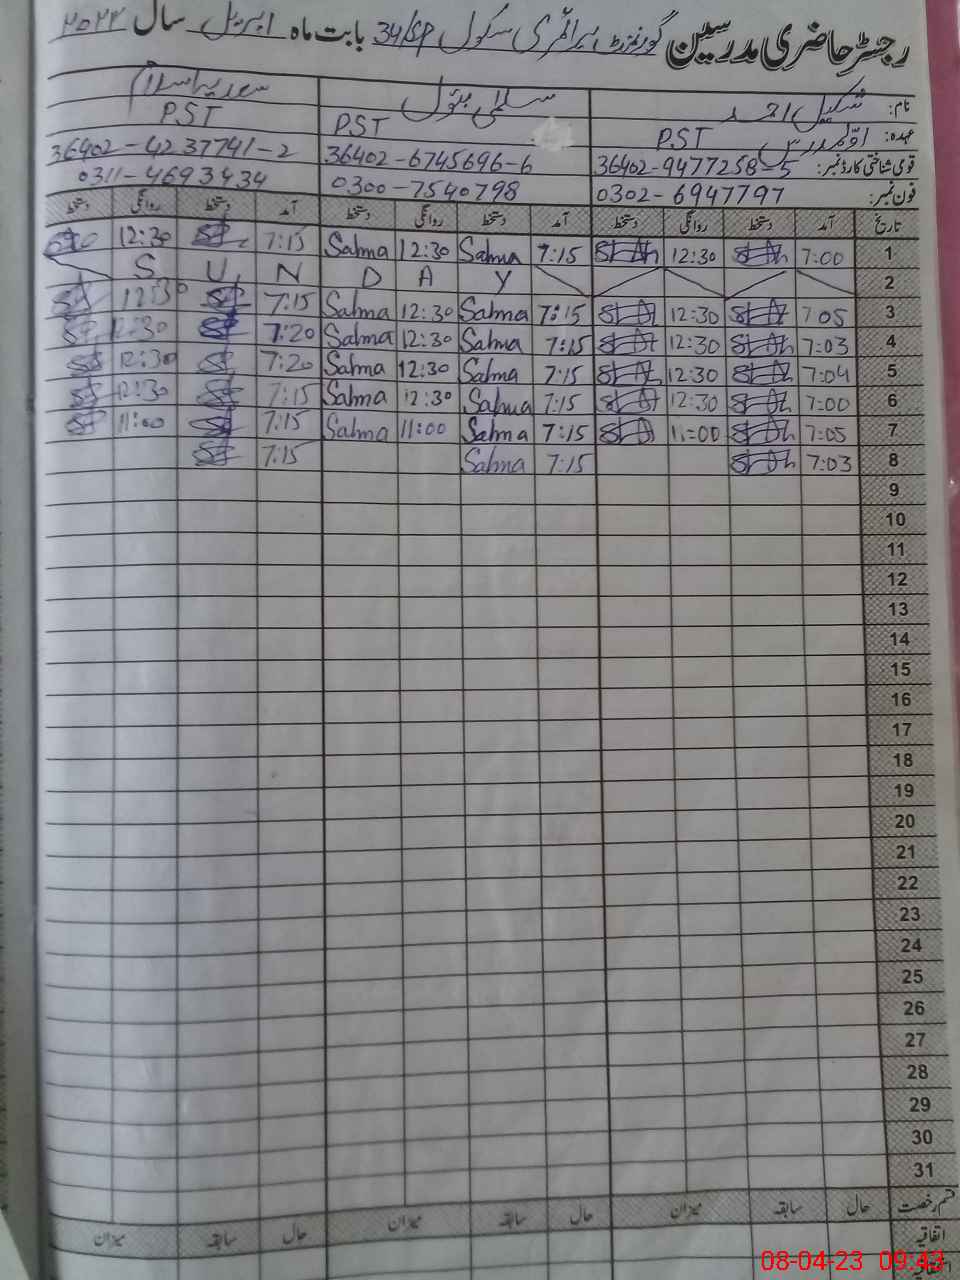 رجسٹر حاضری مدرسین گورنمنٹ پرائمری سکول 34/SP بابت ماہ اپریل سال ۲۰۲۳
نام: شکیل احمد سلمیٰ بتول سعدیہ اسلام
عہدہ: اوّل مدرس PST PST PST
قومی شناختی کارڈ نمبر: 36402-9477258-5 36402-6745696-6 36402-4237741-2
فون نمبر: 0302-6947797 0300-7540798 0311-4693434
تاریخ آمد دستخط روانگی دستخط آمد دستخط روانگی دستخط آمد دستخط روانگی دستخط
1 7:00 12:30 7:15 Salma 12:30 Salma 7:15 12:30
2 S U N D A Y
3 7 05 12:30 7:15 Salma 12:30 Salma 7:15 12:30
4 7:03 12:30 7:15 Salma 12:30 Salma 7:20 12:30
5 7:04 12:30 7:15 Salma 12:30 Salma 7:20 12:30
6 7:00 12:30 7:15 Salma 12:30 Salma 7:15 12:30
7 7:05 11:00 7:15 Salma 11:00 Salma 7:15 11:00
8 7:03 7:15 Salma 7:15
9
10
11
12
13
14
15
16
17
18
19
20
21
22
23
24
25
26
27
28
29
30
31
قسم رخصت حال سابقہ میزان حال سابقہ میزان حال سابقہ میزان
اتفاقیہ
08-04-23 09:43